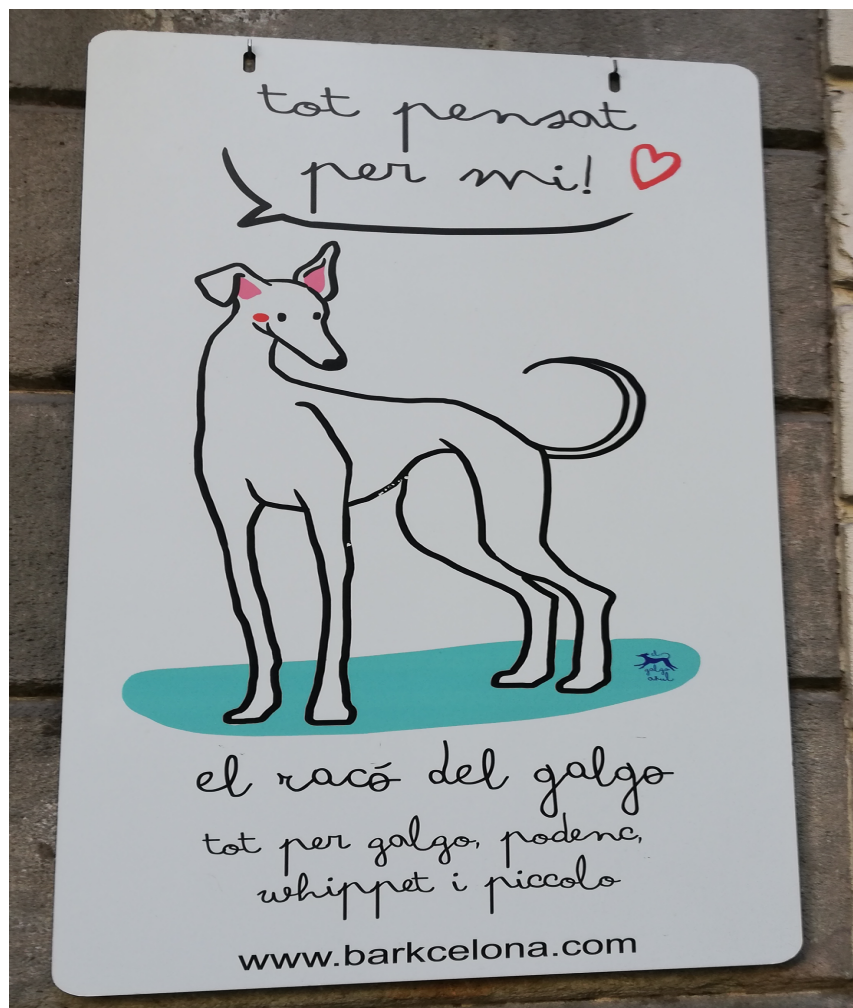 tot pensat
per mi!
el
galgo
azul
el racó del galgo
tot per galgo, podenc,
whippet i piccolo
www.barkcelona.com